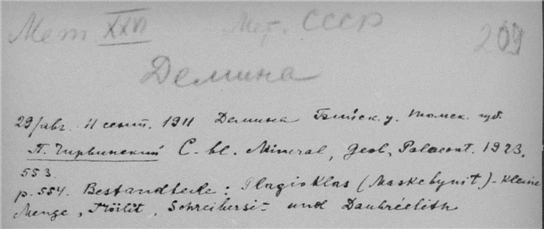 Мет XXVI Мет. СССР 209
Демина
29/авг. 11 сент. 1911 Демина Бийск. у. Томск. губ.
П. Чирвинский C. bl. Mineral, Geol, Palaeont. 1923.
553.
p. 554. Bestandteile: Plagioklas (Maskelynit) - kleine
Menge, Troilit, Schreibersit und Daubréelith